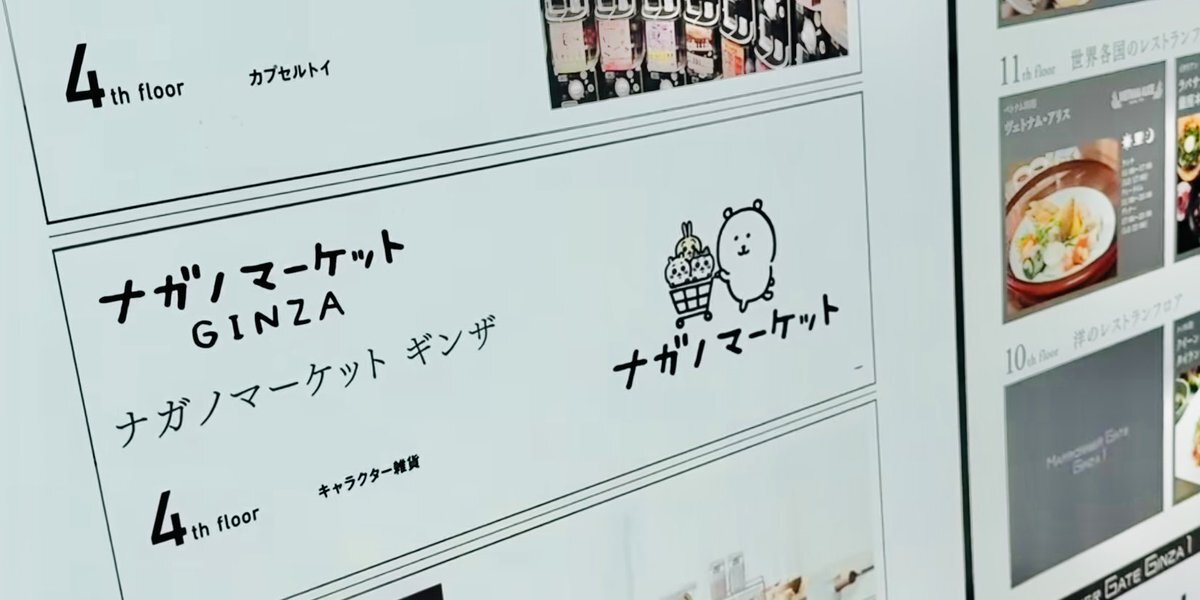 4th floor カプセルトイ
ナガノマーケット
GINZA
ナガノマーケット ギンザ
4th floor キャラクター雑貨
ナガノマーケット
11th floor 世界各国のレストランフ
ベトナム料理
ヴェトナム・アリス
10th floor 洋のレストランフロア
MARRONNIER GATE
GINZA 1
ER GATE GINZA 1